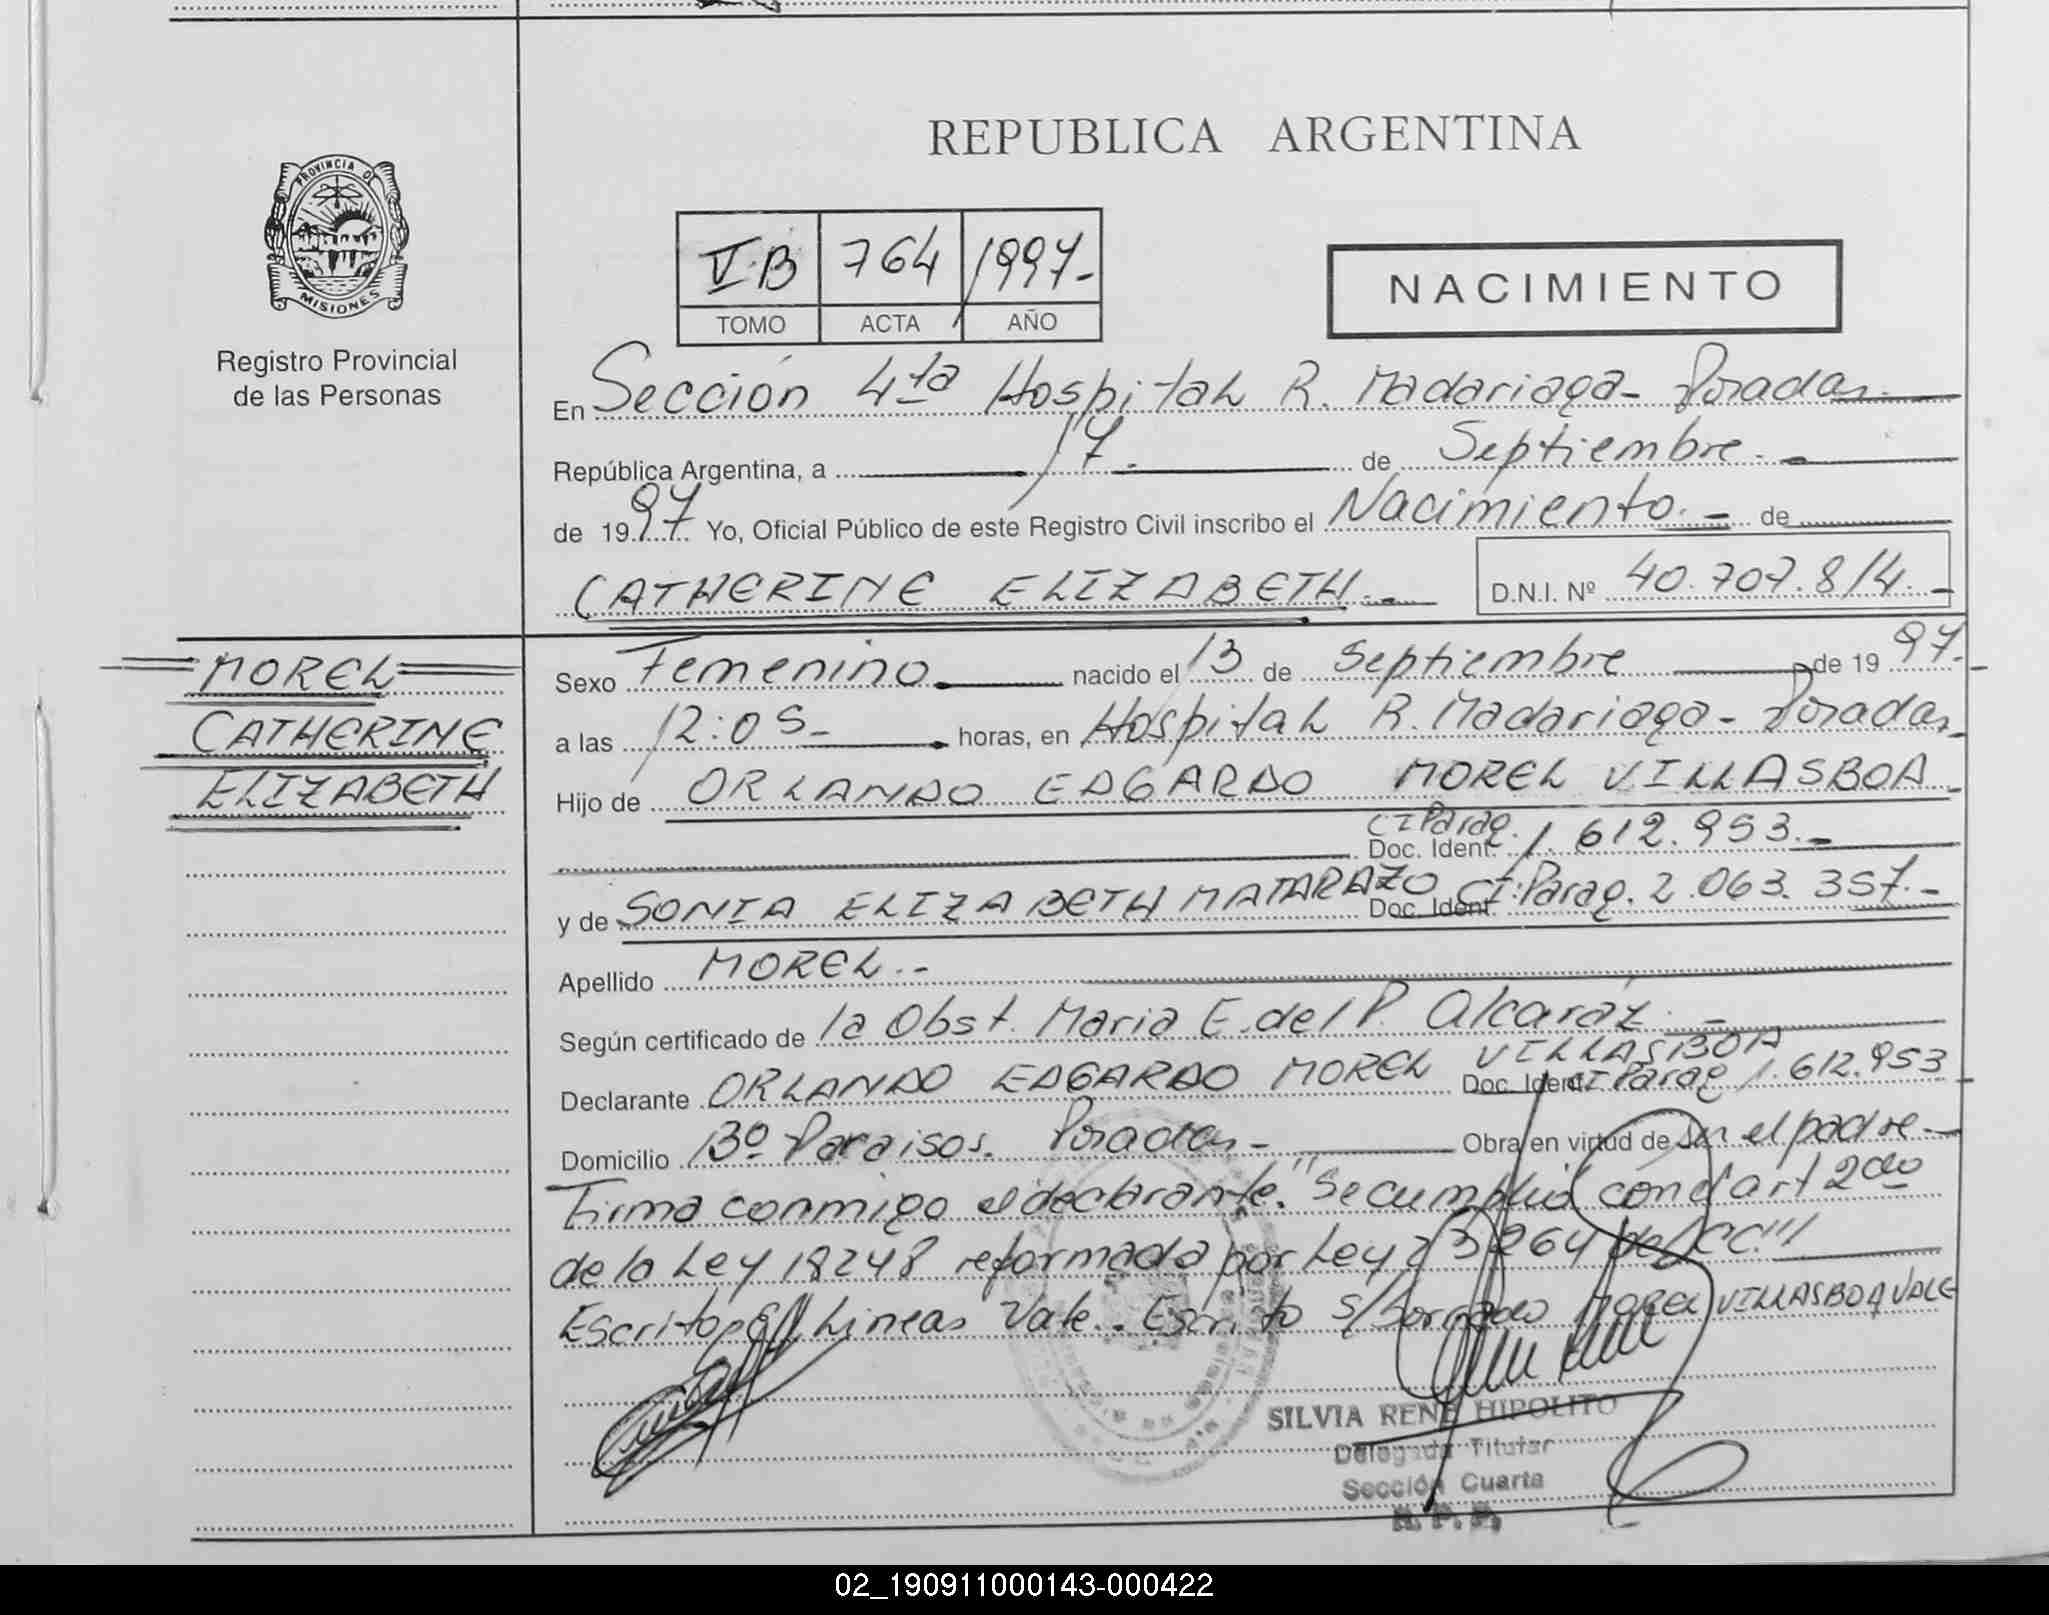 REPUBLICA ARGENTINA
PROVINCIA DE
MISIONES
Registro Provincial
de las Personas
V.B 764 1997-
TOMO ACTA AÑO
NACIMIENTO
En Sección 4ta Hospital R. Madariaga - Posadas
República Argentina, a 17. de Septiembre.
de 1997 Yo, Oficial Público de este Registro Civil inscribo el Nacimiento.- de
CATHERINE ELIZABETH.- D.N.I. Nº 40.707.814.-
MOREL
CATHERINE
ELIZABETH
Sexo Femenino nacido el 13 de Septiembre de 1997.-
a las 12:05- horas, en Hospital R. Madariaga - Posadas
Hijo de ORLANDO EDGARDO MOREL VILLASBOA
Doc. Ident. CI Parag. 1.612.953.-
y de SONIA ELIZABETH MATARAZO Doc. Ident. CI. Parag. 2.063.357.-
Apellido MOREL.-
Según certificado de la Obst. Maria E. del P. Alcaráz.-
Declarante ORLANDO EDGARDO MOREL VILLASBOA Doc. Ident. CI Parag 1.612.953
Domicilio Bº Paraisos. Posadas - Obra en virtud de ser el padre -
Firma conmigo el declarante. "Se cumplió con el art 2do
de la Ley 18248 reformada por Ley 23264 del CC"//
Escrito e/ Lineas Vale. Escrito s/borrado MOREL VILLASBOA VALE
SILVIA RENE HIPOLITO
Delegada Titular
Sección Cuarta
R. P. P.
02_190911000143-000422